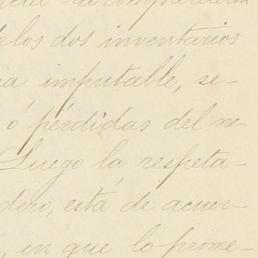 los dos inventarios
imputable, se-
ó pérdidas del ne-
Luego la respeta-
dero, está de acuer-
, en que lo prime-